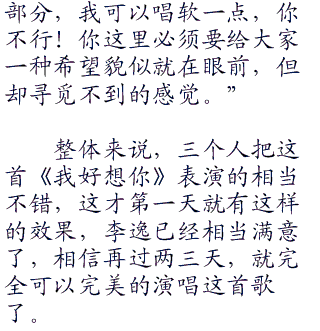 部分，我可以唱软一点，你
不行！你这里必须要给大家
一种希望貌似就在眼前，但
却寻觅不到的感觉。”
整体来说，三个人把这
首《我好想你》表演的相当
不错，这才第一天就有这样
的效果，李逸已经相当满意
了，相信再过两三天，就完
全可以完美的演唱这首歌
了。